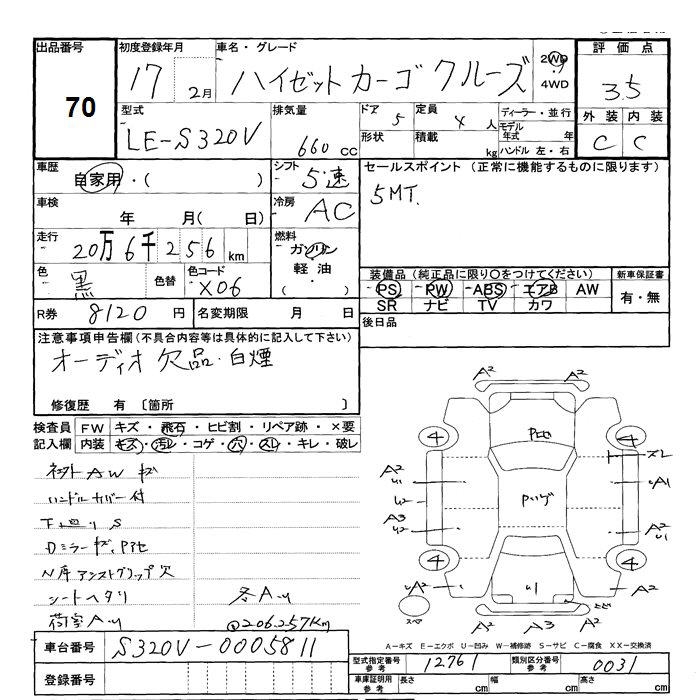 出品番号
70
初度登録年月
17 2月
車名・グレード
ハイゼットカーゴ クルーズ
2WD
4WD
評価点
3.5
型式
LE-S320V
排気量
660 cc
ドア 5
形状
定員 4 人
積載 kg
ディーラー・並行
モデル年式 年
ハンドル 左・右
外装 内装
C C
車歴
自家用・( )
シフト
5・速
セールスポイント (正常に機能するものに限ります)
5MT.
車検
年 月(日)
冷房
AC
走行
20万6千256km
燃料
ガソリン
軽油
( )
色
黒
色替
色コード
X06
装備品(純正品に限り○をつけてください)
PS PW ABS エアB AW
SR ナビ TV カワ
新車保証書
有・無
R券 8120円
名変期限 月 日
後日品
注意事項申告欄(不具合内容等は具体的に記入して下さい)
オーディオ欠品・白煙
修復歴 有〔箇所 〕
検査員記入欄
FW キズ・飛石・ヒビ割・リペア跡・×要
内装 キズ・汚レ・コゲ・穴・スレ・キレ・破レ
ハンドルカバー付
下廻りS
シートヘタリ
荷室AU
@206,257Km
A2
A2
4
4
スレ
A2
U1
U2
A3
U2
A1
A2
U1
4
4
A2
A2
A2 A3 A2
スペア
A-キズ E-エクボ U-凹み W-補修跡 S-サビ C-腐食 XX-交換済
車台番号 S320V-0005811
登録番号
型式指定番号 参考 12761
類別区分番号 参考 0031
車庫証明用 参考
長さ cm
幅 cm
高さ cm